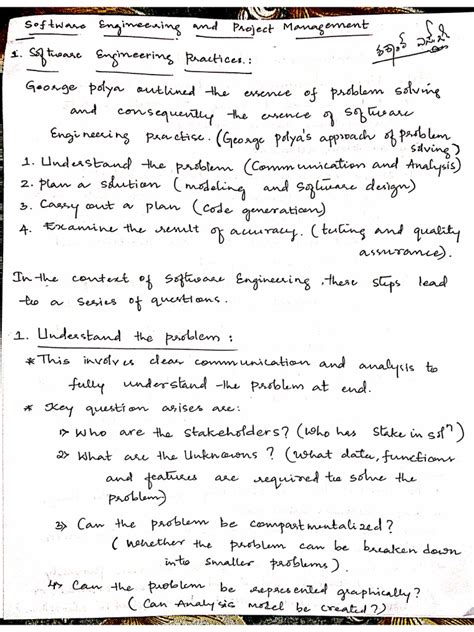 Software Engineering and Project Management
1. Software Engineering Practices:
George polya outlined the essence of problem solving
and consequently the essence of software
Engineering practise. (George polya's approach of problem
solving)
1. Understand the problem (Communication and Analysis)
2. plan a solution (modeling and software design)
3. Carry out a plan (Code generation)
4. Examine the result of accuracy. (testing and quality
assurance).
In the context of Software Engineering, these steps lead
to a series of questions.
1. Understand the problem :
* This involves clear communication and analysis to
fully understand the problem at end.
* Key question arises are:
1> Who are the Stakeholders? (Who has stake in solⁿ)
2> What are the Unknowns ? (What data, functions
and features are required to solve the
problem)
3> Can the problem be compartmentalized?
( Whether the problem can be broken down
into smaller problems).
4> Can the problem be represented graphically?
( Can Analysis model be created?)